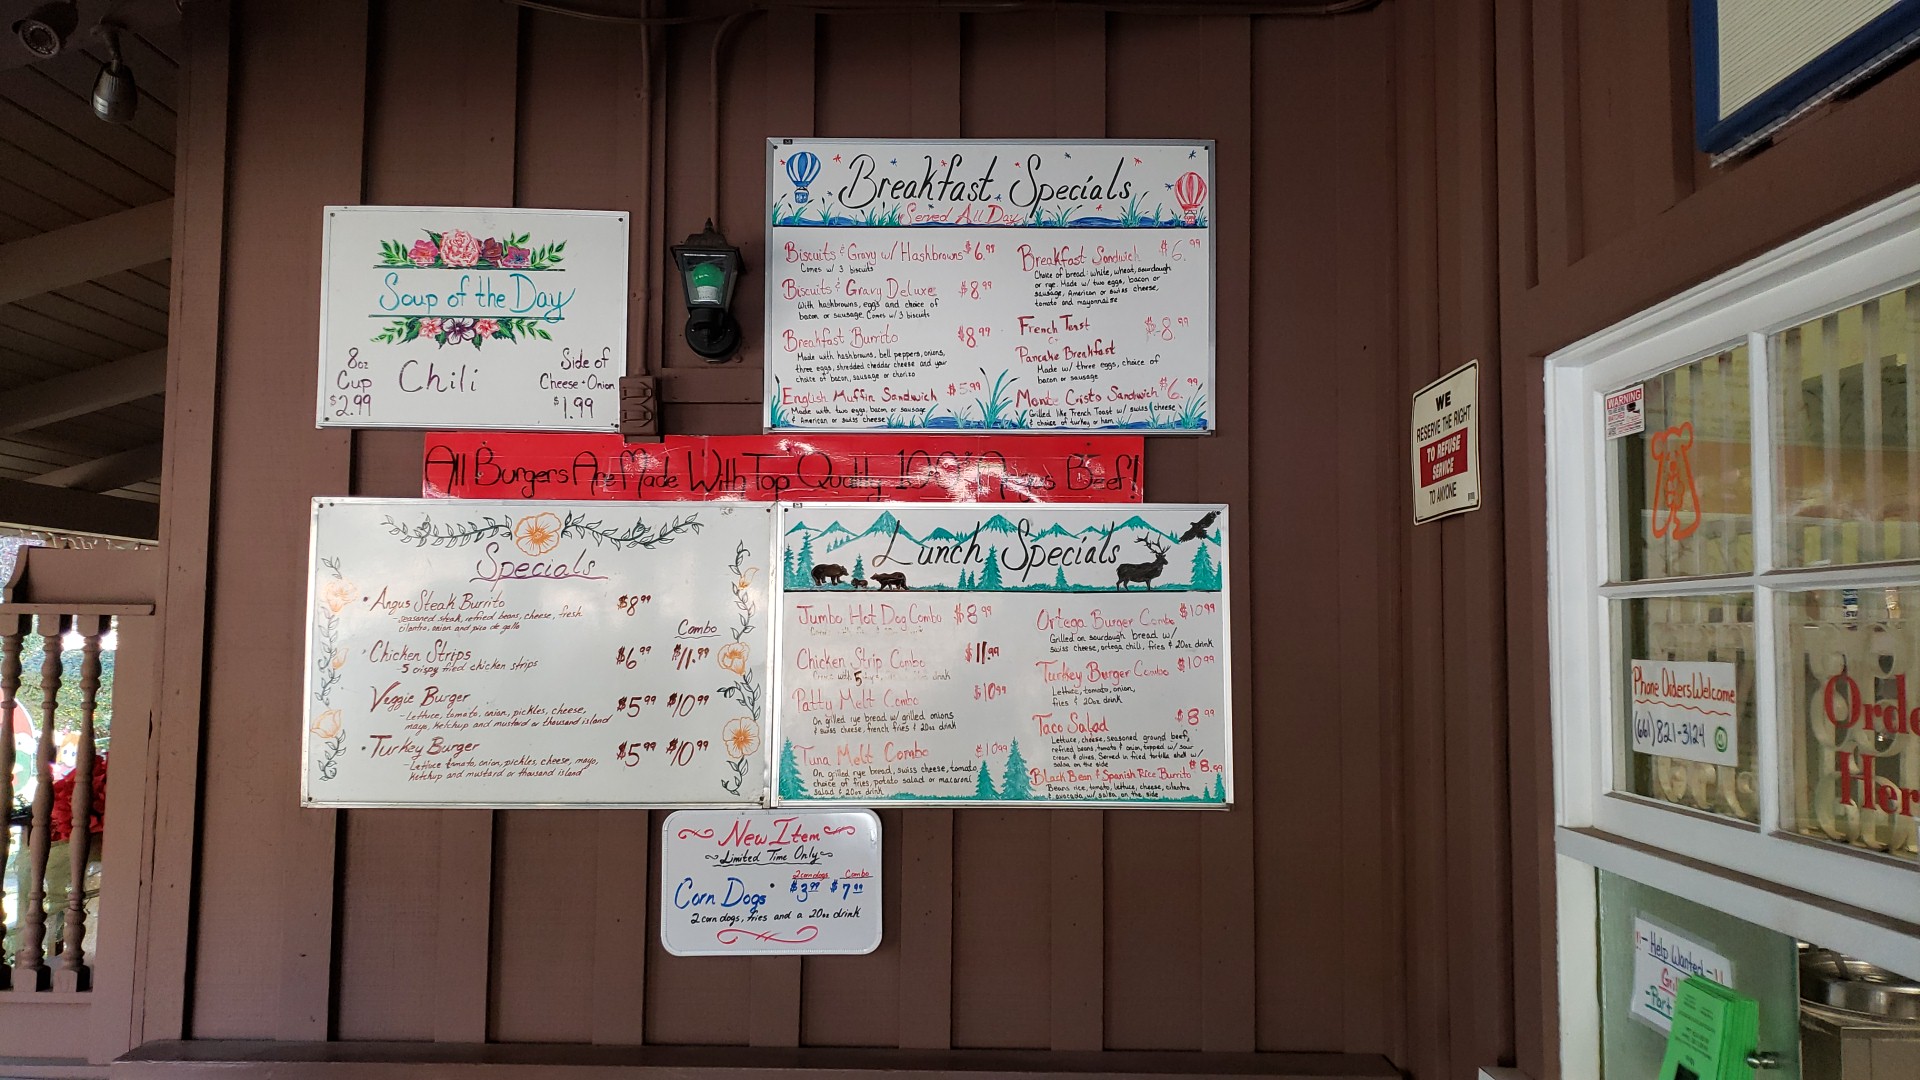 Soup of the Day
8oz
Cup
$2.99
Chili
Side of
Cheese + Onion
$1.99
Breakfast Specials
Served All Day
Biscuits & Gravy w/ Hashbrowns $6.99
Comes w/ 3 biscuits
Biscuits & Gravy Deluxe $8.99
With hashbrowns, eggs and choice of
bacon or sausage. Comes w/ 3 biscuits
Breakfast Burrito $8.99
Made with hashbrowns, bell peppers, onions,
three eggs, shredded cheddar cheese and your
choice of bacon, sausage or chorizo
English Muffin Sandwich $5.99
Made with two eggs, bacon or sausage
& American or swiss cheese
Breakfast Sandwich $6.99
Choice of bread: white, wheat, sourdough
or rye. Made w/ two eggs, bacon or
sausage, American or swiss cheese,
tomato and mayonnaise
French Toast $8.99
or
Pancake Breakfast
Made w/ three eggs, choice of
bacon or sausage
Monte Cristo Sandwich $6.99
Grilled like French Toast w/ swiss cheese
& choice of turkey or ham
All Burgers Are Made With Top Quality 100% Angus Beef!
Specials
• Angus Steak Burrito $8.99
- seasoned steak, refried beans, cheese, fresh
cilantro, onion and pico de gallo
Combo
• Chicken Strips $6.99 $11.99
- 5 crispy fried chicken strips
Veggie Burger $5.99 $10.99
- Lettuce, tomato, onion, pickles, cheese,
mayo, ketchup and mustard or thousand island
• Turkey Burger $5.99 $10.99
- Lettuce tomato, onion, pickles, cheese, mayo,
ketchup and mustard or thousand island
Lunch Specials
Jumbo Hot Dog Combo $8.99
Chicken Strip Combo $11.99
5 drink
Patty Melt Combo $10.99
On grilled rye bread w/ grilled onions
& swiss cheese, french fries & 20oz drink
Tuna Melt Combo $10.99
On grilled rye bread, swiss cheese, tomato,
choice of fries, potato salad or macaroni
salad & 20oz drink
Ortega Burger Combo $10.99
Grilled on sourdough bread w/
swiss cheese, ortega chili, fries & 20oz drink
Turkey Burger Combo $10.99
Lettuce, tomato, onion,
fries & 20oz drink
Taco Salad $8.99
Lettuce, cheese, seasoned ground beef,
refried beans, tomato & onion, topped w/ sour
cream & olives. Served in fried tortilla shell w/
salsa on the side
Black Bean & Spanish Rice Burrito $8.99
Beans rice, tomato, lettuce, cheese, cilantro
& avocado w/ salsa on the side
New Item
Limited Time Only
2 corn dogs Combo
Corn Dogs • $3.99 $7.99
2 corn dogs, fries and a 20oz drink
WE
RESERVE THE RIGHT
TO REFUSE
SERVICE
TO ANYONE
WARNING
Phone Orders Welcome
(661) 821-3124
Orde
Her
!!- Help Wanted -!!
Gril
- Part